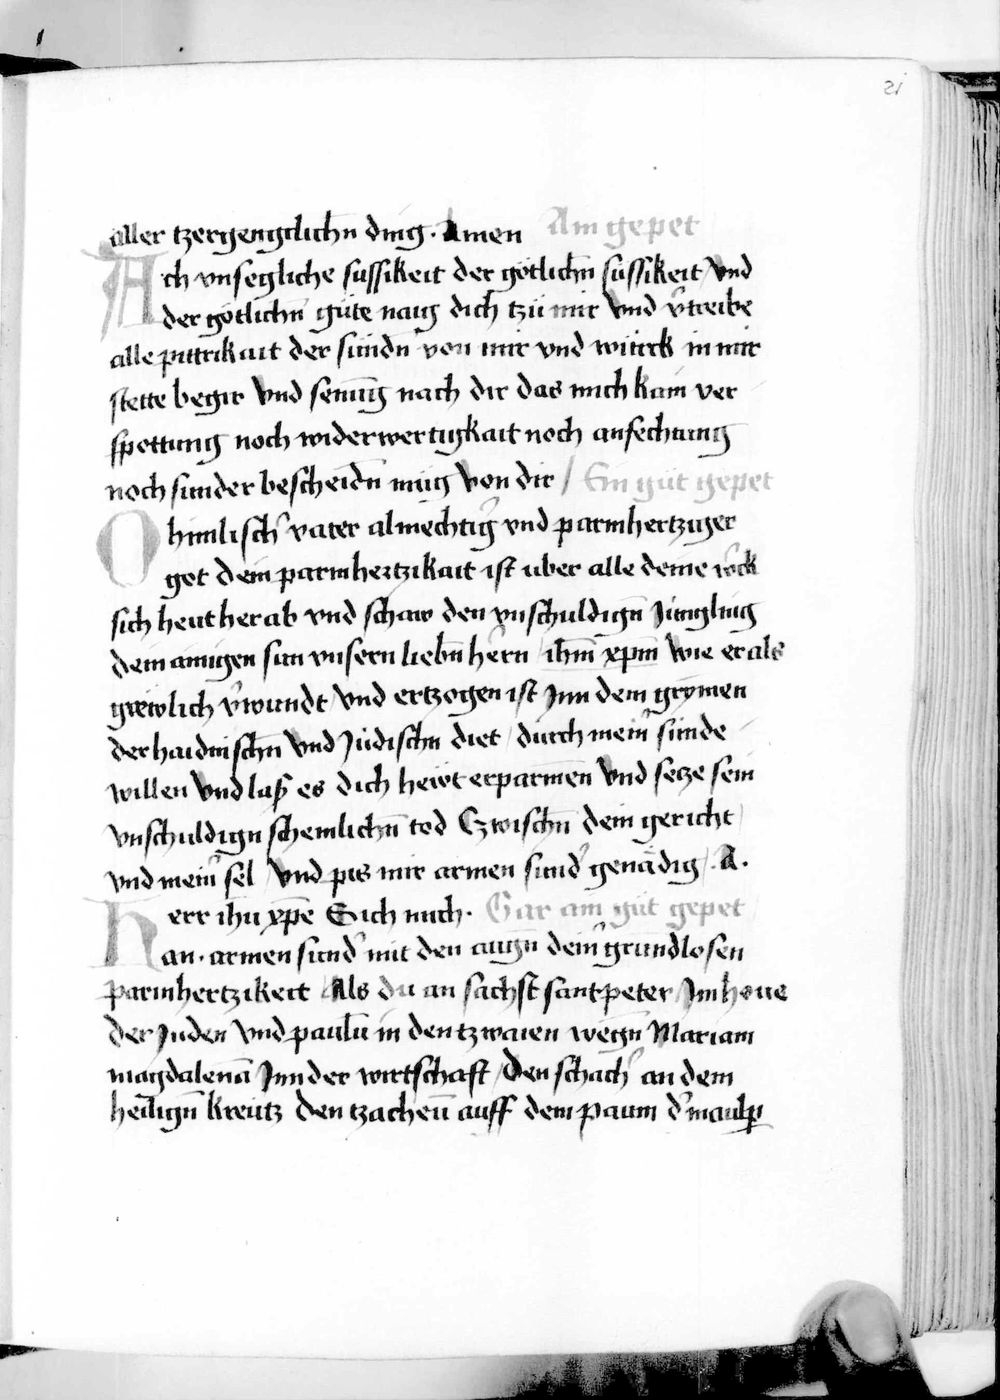 21
aller tzergengclichn̄ ding · Amen Ain gepet
Ach vnsegliche sussikeit der götlichn̄ süssikeit vnd
der götlichn̄ güte naig dich tzü mir vnd v̾treibe
alle pittrikait der sündn̄ von mir vnd wiirck in mir
stette begir vnd senūg nach dir das mich kain ver
spottung noch widerwertigkait noch anfechtung
noch sunder bescheidn̄ müg von dir / Ein güt gepet
O himlisch̾ vater almechtig̾ vnd parmhertziger
got dein parmhertzikait ist uber alle deine w̾ck
sich heut herab vnd schaw den vnschuldign̄ Jüngling
dein ainigen sun vnsern liebn̄ h̾rn ihm̄ xpm̄ wie er als
grewlich v̾wundt vnd ertzogen ist Jnn dem grymen
der haidnischn̄ vnd Jüdischn diet / durch mein̾ sünde
willen vnd laß es dich hewt erparmen vnd setze sein
vnschuldign schemlichn̄ tod Czwischn̄ dein gericht
vnd mein̾ sel vnd pis mir armen sund̾ genädig / · A ·
Herr ihu xpē Sich mich · Gar ain güt gepet
an · armen sund̾ mit den augn̄ dein̾ grundlosen
parmhertzikeit Als du an sachst sant peter Jm houe
der Juden vnd paulū in den tzwaien wegn̄ Mariam
magdalenā Jnn der wirtschaft / Den schach̾ an dem
heilign̄ kreütz den tzacheū auff dem paum d̾ maulp̱